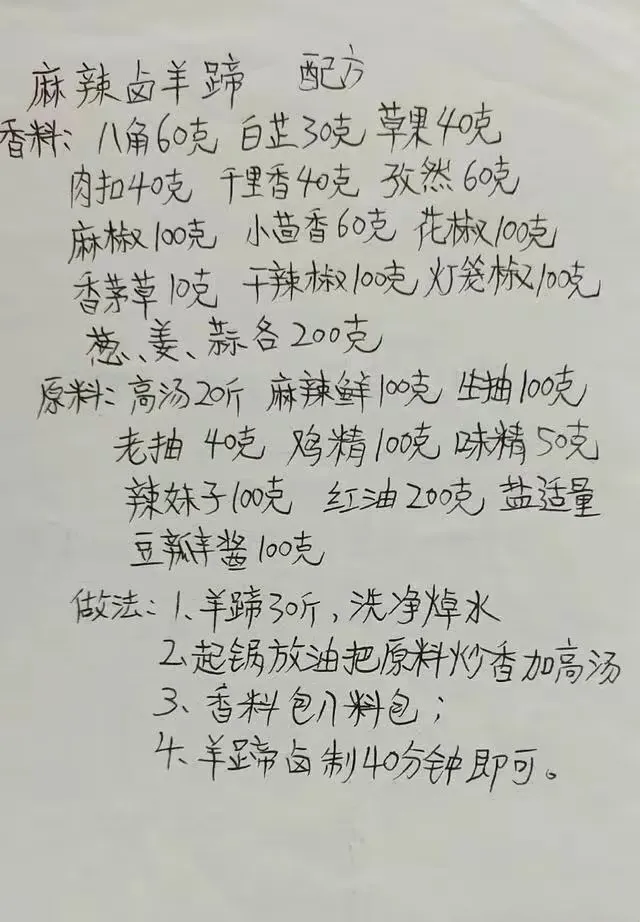 麻辣卤羊蹄 配方
香料：八角60克 白芷30克 草果40克
肉扣40克 千里香40克 孜然60克
麻椒100克 小茴香60克 花椒100克
香茅草10克 干辣椒100克 灯笼椒100克
葱、姜、蒜各200克
原料：高汤20斤 麻辣鲜100克 生抽100克
老抽 40克 鸡精100克 味精50克
辣妹子100克 红油200克 盐适量
豆瓣酱100克
做法：1、羊蹄30斤，洗净焯水
2、起锅放油把原料炒香加高汤
3、香料包入料包；
4、羊蹄卤制40分钟即可。